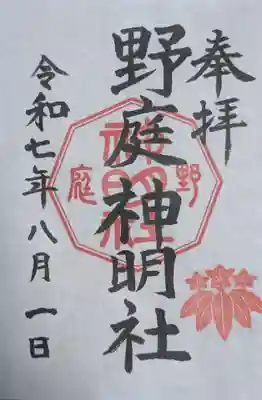 奉拝
野庭神明社
令和七年八月一日
野庭
神明社